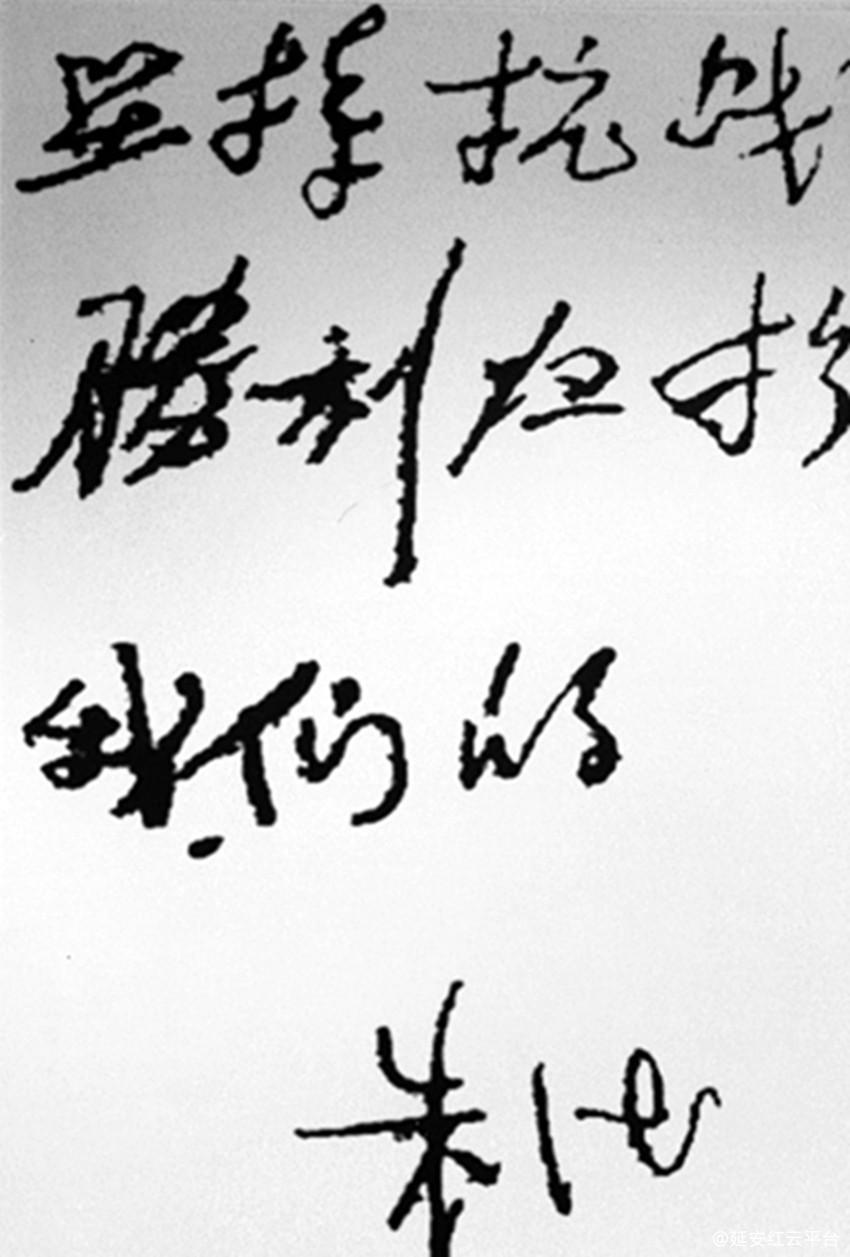 坚持抗战
勝利於
我们的
朱德
@延安红云平台